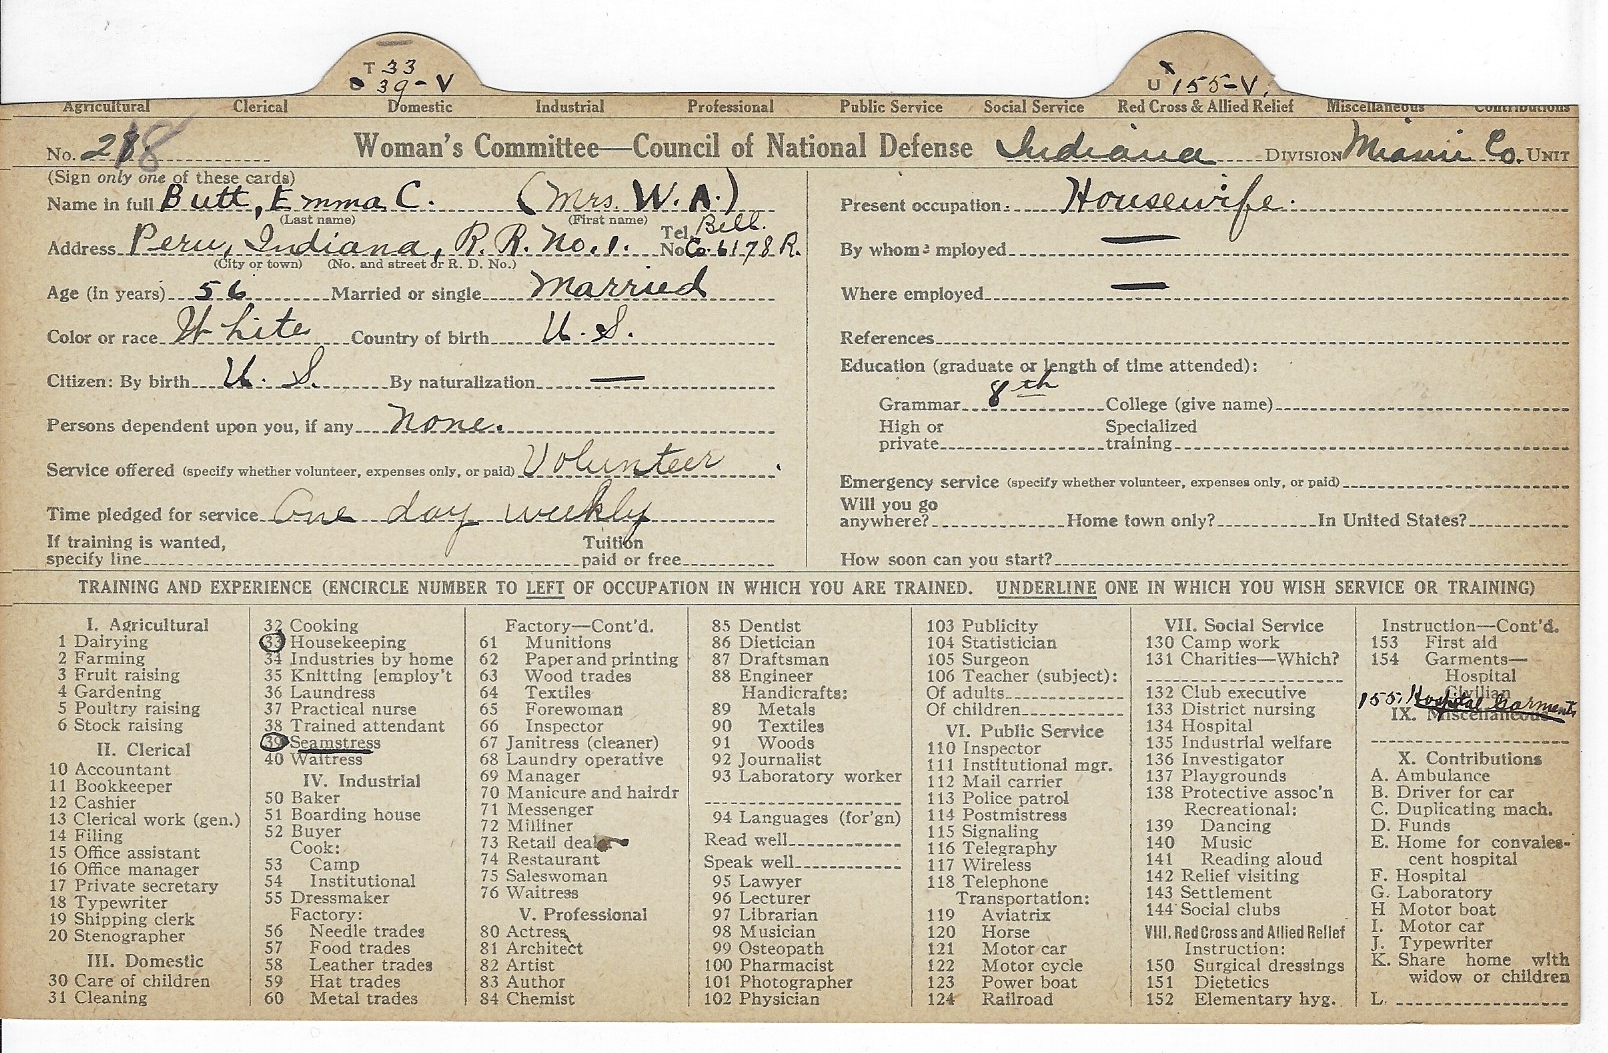 T 33
39-V
U 155-V.
Agricultural Clerical Domestic Industrial Professional Public Service Social Service Red Cross & Allied Relief Miscellaneous Contributions
No. Woman's Committee—Council of National Defense Indiana DIVISION Miami Co. UNIT
(Sign only one of these cards)
Name in full Butt, Emma C. (Mrs. W. A.)
(Last name) (First name)
Address Peru, Indiana, R. R. No. 1. Tel. No. Bell. Co. 6178 R.
(City or town) (No. and street or R. D. No.)
Age (in years) 56 Married or single Married
Color or race White Country of birth U. S.
Citizen: By birth U. S. By naturalization —
Persons dependent upon you, if any None.
Service offered (specify whether volunteer, expenses only, or paid) Volunteer
Time pledged for service One day weekly
If training is wanted, specify line Tuition paid or free
Present occupation: Housewife.
By whom employed —
Where employed —
References
Education (graduate or length of time attended):
Grammar 8th College (give name)
High or private Specialized training
Emergency service (specify whether volunteer, expenses only, or paid)
Will you go anywhere? Home town only? In United States?
How soon can you start?
TRAINING AND EXPERIENCE (ENCIRCLE NUMBER TO LEFT OF OCCUPATION IN WHICH YOU ARE TRAINED. UNDERLINE ONE IN WHICH YOU WISH SERVICE OR TRAINING)
I. Agricultural
1 Dairying
2 Farming
3 Fruit raising
4 Gardening
5 Poultry raising
6 Stock raising
II. Clerical
10 Accountant
11 Bookkeeper
12 Cashier
13 Clerical work (gen.)
14 Filing
15 Office assistant
16 Office manager
17 Private secretary
18 Typewriter
19 Shipping clerk
20 Stenographer
III. Domestic
30 Care of children
31 Cleaning
32 Cooking
33 Housekeeping
34 Industries by home
35 Knitting [employ't
36 Laundress
37 Practical nurse
38 Trained attendant
39 Seamstress
40 Waitress
IV. Industrial
50 Baker
51 Boarding house
52 Buyer
Cook:
53 Camp
54 Institutional
55 Dressmaker
Factory:
56 Needle trades
57 Food trades
58 Leather trades
59 Hat trades
60 Metal trades
Factory—Cont'd.
61 Munitions
62 Paper and printing
63 Wood trades
64 Textiles
65 Forewoman
66 Inspector
67 Janitress (cleaner)
68 Laundry operative
69 Manager
70 Manicure and hairdr
71 Messenger
72 Milliner
73 Retail
74 Restaurant
75 Saleswoman
76 Waitress
V. Professional
80 Actress
81 Architect
82 Artist
83 Author
84 Chemist
85 Dentist
86 Dietician
87 Draftsman
88 Engineer
Handicrafts:
89 Metals
90 Textiles
91 Woods
92 Journalist
93 Laboratory worker
94 Languages (for'gn)
Read well
Speak well
95 Lawyer
96 Lecturer
97 Librarian
98 Musician
99 Osteopath
100 Pharmacist
101 Photographer
102 Physician
103 Publicity
104 Statistician
105 Surgeon
106 Teacher (subject):
Of adults
Of children
VI. Public Service
110 Inspector
111 Institutional mgr.
112 Mail carrier
113 Police patrol
114 Postmistress
115 Signaling
116 Telegraphy
117 Wireless
118 Telephone
Transportation:
119 Aviatrix
120 Horse
121 Motor car
122 Motor cycle
123 Power boat
124 Railroad
VII. Social Service
130 Camp work
131 Charities—Which?
132 Club executive
133 District nursing
134 Hospital
135 Industrial welfare
136 Investigator
137 Playgrounds
138 Protective assoc'n
Recreational:
139 Dancing
140 Music
141 Reading aloud
142 Relief visiting
143 Settlement
144 Social clubs
VIII. Red Cross and Allied Relief
Instruction:
150 Surgical dressings
151 Dietetics
152 Elementary hyg.
Instruction—Cont'd.
153 First aid
154 Garments—
Hospital
Civilian
155. Hospital Garments
IX. Miscellaneous
X. Contributions
A. Ambulance
B. Driver for car
C. Duplicating mach.
D. Funds
E. Home for convales-
cent hospital
F. Hospital
G. Laboratory
H Motor boat
I. Motor car
J. Typewriter
K. Share home with
widow or children
L.